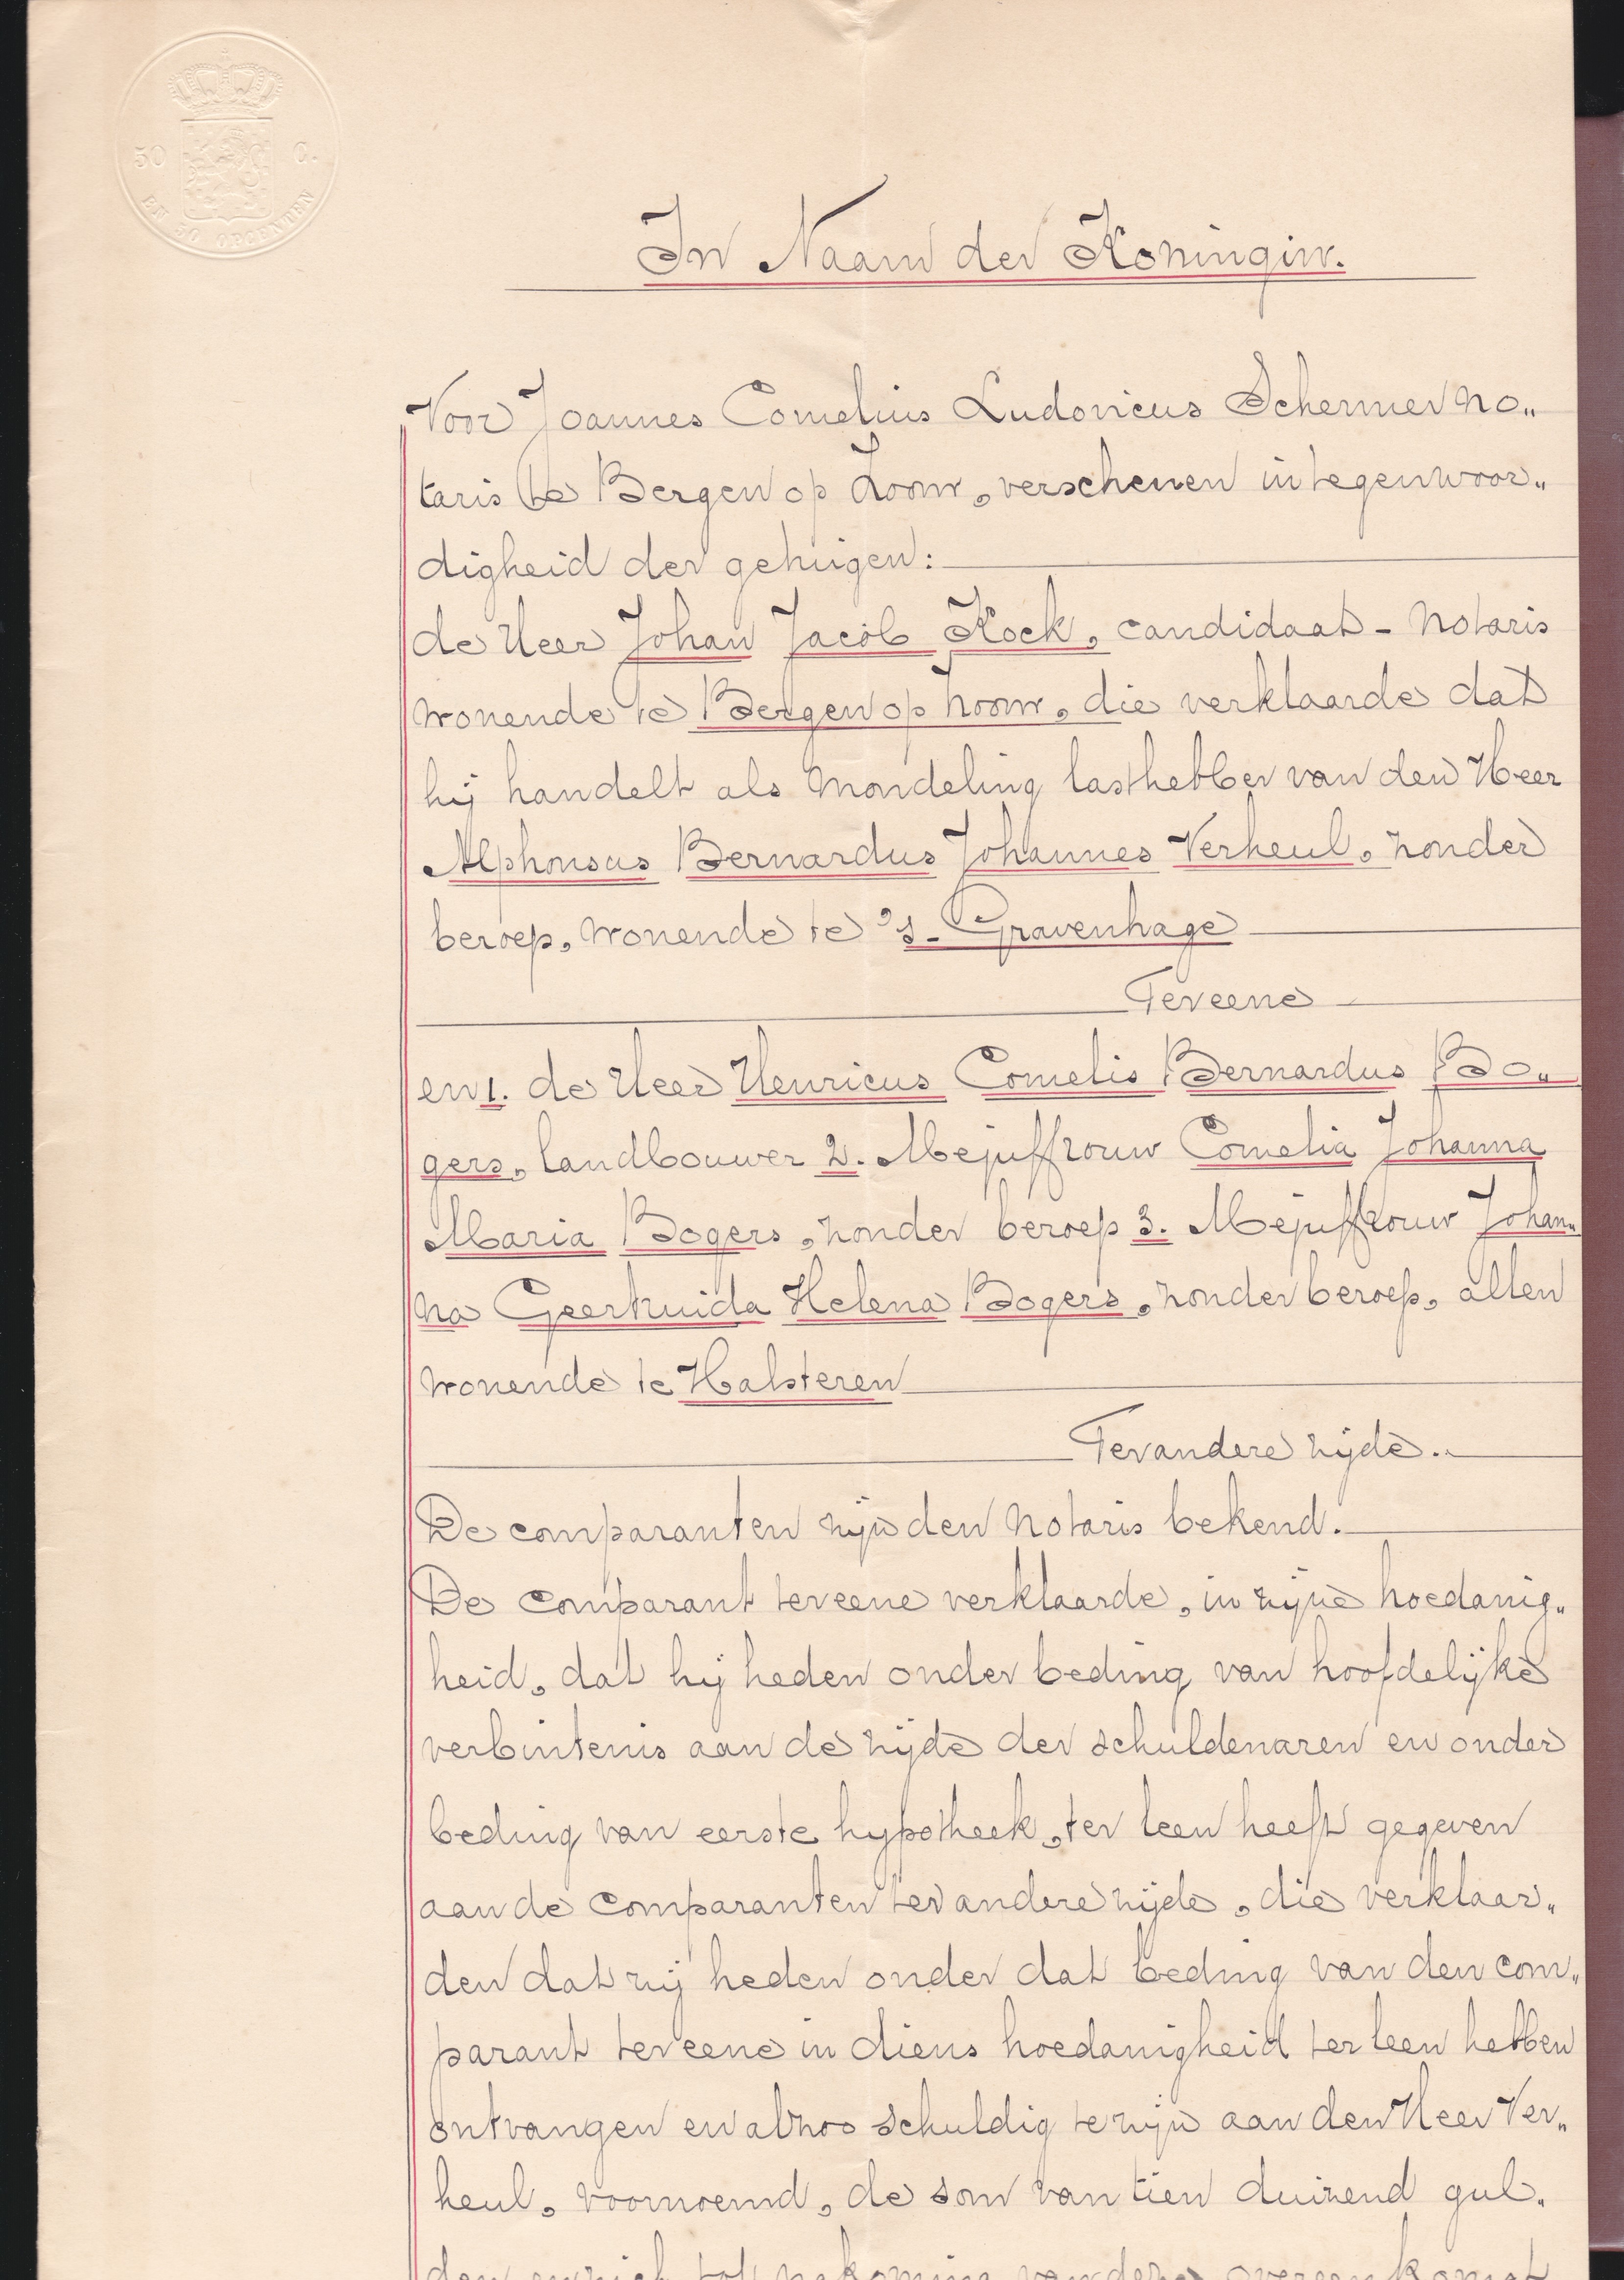 50 C.
EN 50 OPCENTEN
In Naam der Koningin.
Voor Joannes Cornelius Ludovicus Schermer no„
taris te Bergen op Zoom, verschenen in tegenwoor„
digheid der getuigen:
de Heer Johan Jacob Kock, candidaat - notaris
wonende te Bergen op Zoom, die verklaarde dat
hij handelt als mondeling lasthebber van den Heer
Alphonsus Bernardus Johannes Verheul, zonder
beroep, wonende te 's-Gravenhage
Tereene
en 1. de Heer Henricus Cornelis Bernardus Bo„
gers, landbouwer 2. Mejuffrouw Cornelia Johanna
Maria Bogers, zonder beroep 3. Mejuffrouw Johan„
na Geertruida Helena Bogers, zonder beroep, allen
wonende te Halsteren
Terandere zijde.
De comparanten zijn den notaris bekend.
De comparant tereene verklaarde, in zijne hoedanig„
heid, dat hij heden onder beding van hoofdelijke
verbintenis aan de zijde der schuldenaren en onder
beding van eerste hypotheek, ter leen heeft gegeven
aan de comparanten ter andere zijde, die verklaar„
den dat zij heden onder dat beding van den com„
parant tereene in diens hoedanigheid ter leen hebben
ontvangen en alzoo schuldig te zijn aan den Heer Ver„
heul, voornoemd, de som van tien duizend gul„
den en zich tot nakoming van deze overeenkomst